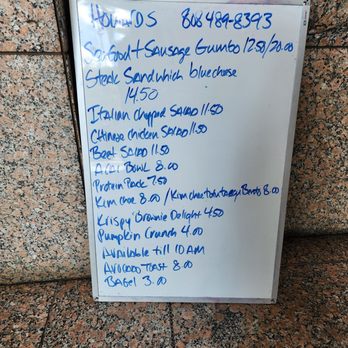 HOWARDS 808 489-8393
Seafood + Sausage Gumbo 12.50/20.00
Steak Sandwhich bluechese
14.50
Italian chopped SALAD 11.50
Chinese chicken SALAD 11.50
Beet SALAD 11.50
Acai Bowl 8.00
Protein Pack 7.50
Kim chee 8.00 / Kim chee Bento 8.00
Krispy Brownie Delight 4.50
Pumpkin Crunch 4.00
Available till 10AM
Avocado Toast 8.00
BAGel 3.00